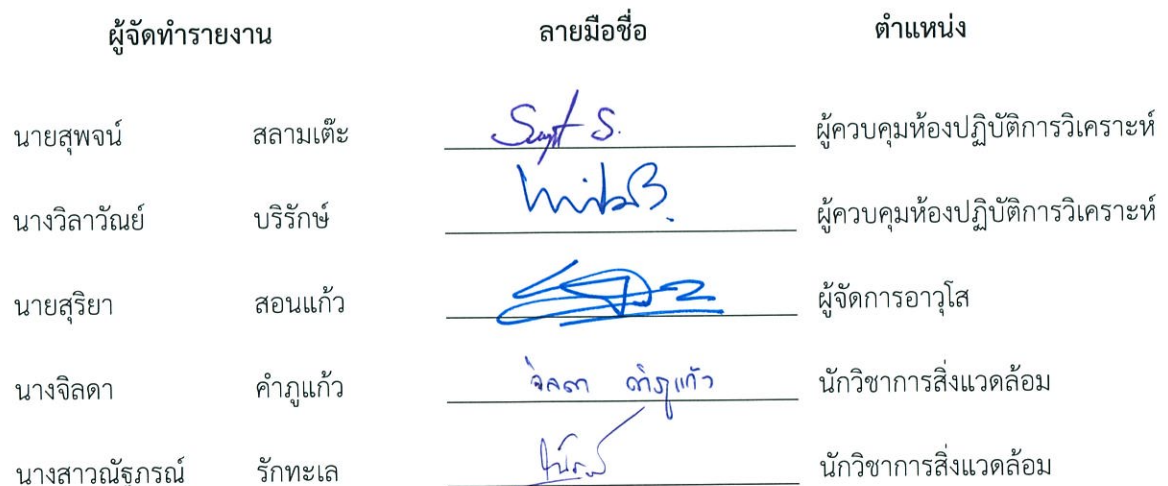 ผู้จัดทำรายงาน ลายมือชื่อ ตำแหน่ง
นายสุพจน์ สลามเต๊ะ ผู้ควบคุมห้องปฏิบัติการวิเคราะห์
นางวิลาวัณย์ บริรักษ์ ผู้ควบคุมห้องปฏิบัติการวิเคราะห์
นายสุริยา สอนแก้ว ผู้จัดการอาวุโส
นางจิลดา คำภูแก้ว จิลดา คำภูแก้ว นักวิชาการสิ่งแวดล้อม
นางสาวณัฐภรณ์ รักทะเล นักวิชาการสิ่งแวดล้อม